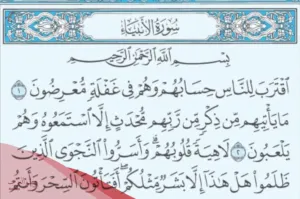 سورة الأنبياء
بِسْمِ اللَّهِ الرَّحْمَٰنِ الرَّحِيمِ
اقْتَرَبَ لِلنَّاسِ حِسَابُهُمْ وَهُمْ فِي غَفْلَةٍ مُعْرِضُونَ ١
مَا يَأْتِيهِمْ مِنْ ذِكْرٍ مِنْ رَبِّهِمْ مُحْدَثٍ إِلَّا اسْتَمَعُوهُ وَهُمْ
يَلْعَبُونَ ٢ لَاهِيَةً قُلُوبُهُمْ وَأَسَرُّوا النَّجْوَى الَّذِينَ
ظَلَمُوا هَلْ هَٰذَا إِلَّا بَشَرٌ مِثْلُكُمْ أَفَتَأْتُونَ السِّحْرَ وَأَنْتُمْ